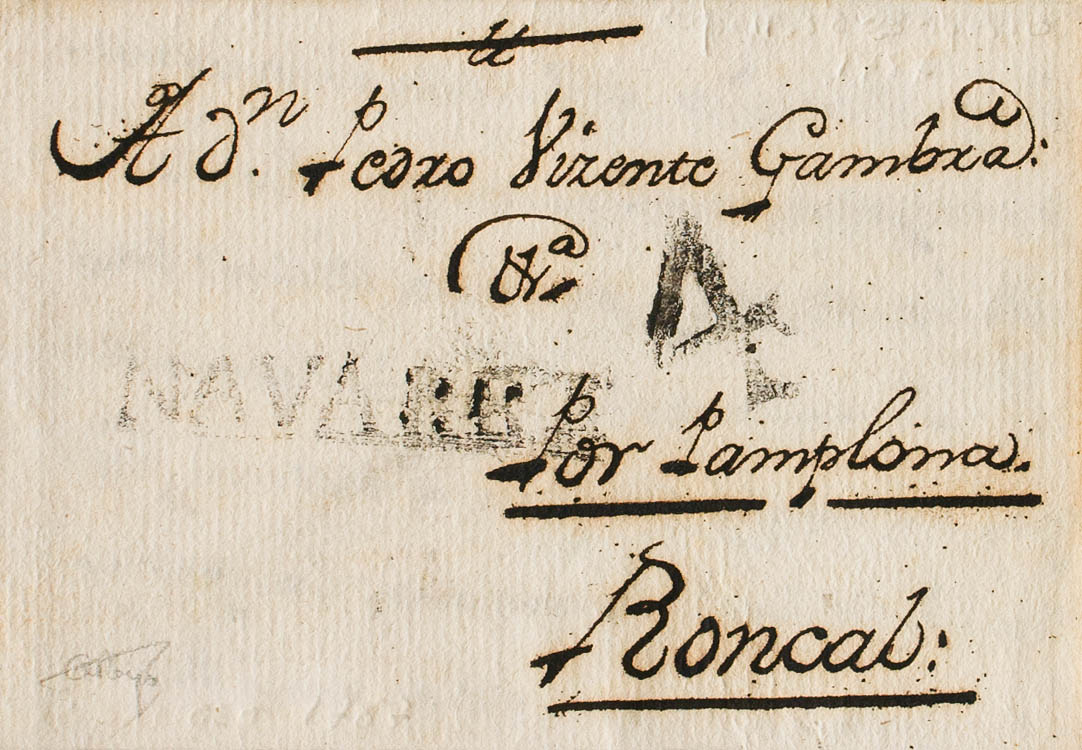 A Dn. Pedro Vizente Gambra:
&ra.
4
NAVARRA
Por Pamplona.
Roncal: